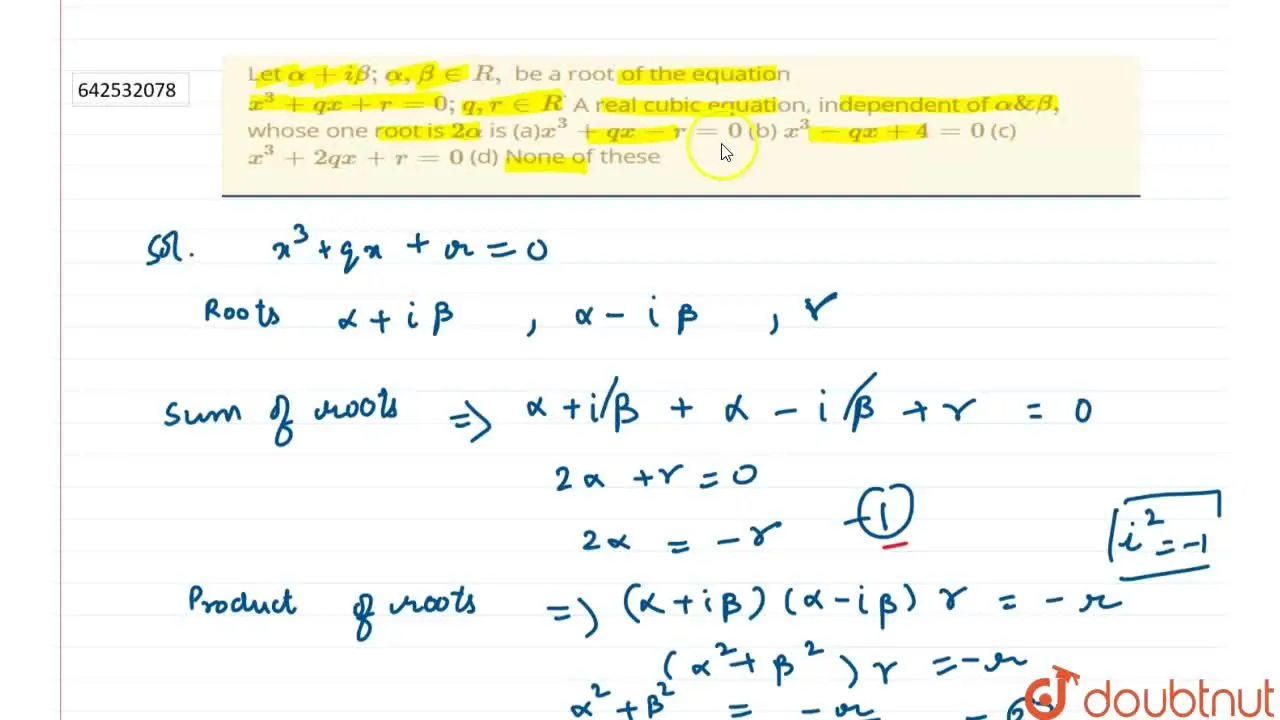 642532078
Let α + iβ; α, β ∈ R, be a root of the equation
x³ + qx + r = 0; q, r ∈ R A real cubic equation, independent of α&β,
whose one root is 2α is (a)x³ + qx − r = 0 (b) x³ − qx + 4 = 0 (c)
x³ + 2qx + r = 0 (d) None of these
Sol. x³ + qx + r = 0
Roots α + iβ , α − iβ , γ
Sum of roots ⇒ α + iβ + α − iβ + γ = 0
2α + γ = 0
2α = −γ −①
i² = −1
Product of roots ⇒ (α + iβ) (α − iβ) γ = −r
(α² + β²) γ = −r
α² + β² = −r
doubtnut